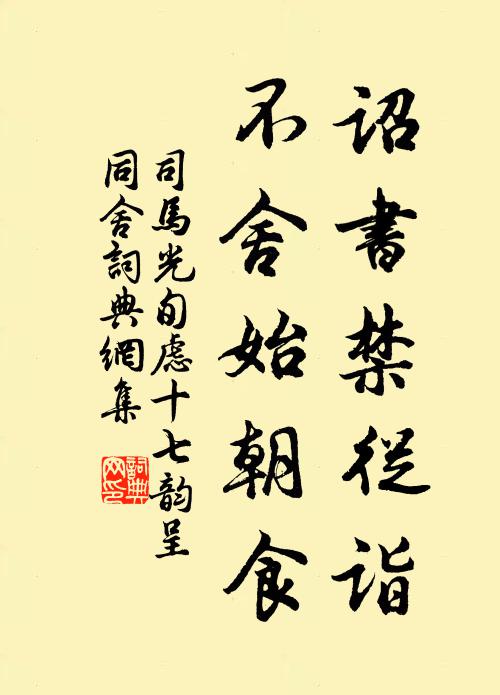 詔書禁從詣
不舍始朝食
司馬光旬慮十七韵呈
同舍詞典網集
詞典
网印